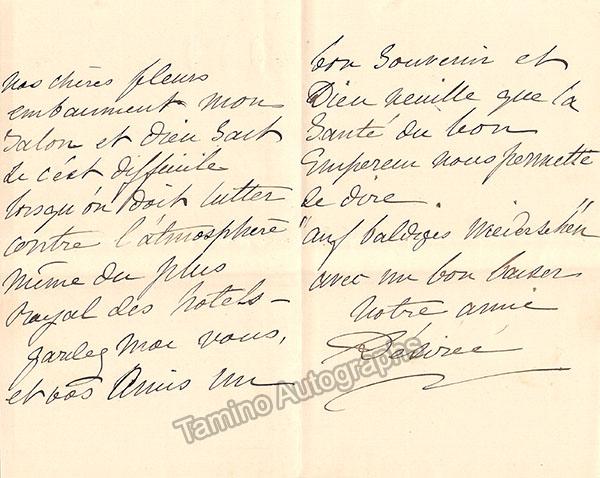 vos chères fleurs
embaument mon
Salon et Dieu sait
si c'est difficile
lorsqu'on doit lutter
contre l'atmosphère
même du plus
royal des hotels –
gardez moi vous,
et vos Amis un
bon Souvenir et
Dieu veuille que la
Santé du bon
Empereur nous permette
de dire
"auf baldiges Wiedersehen"
avec un bon baiser
votre amie
Désirée
Tamino Autographs